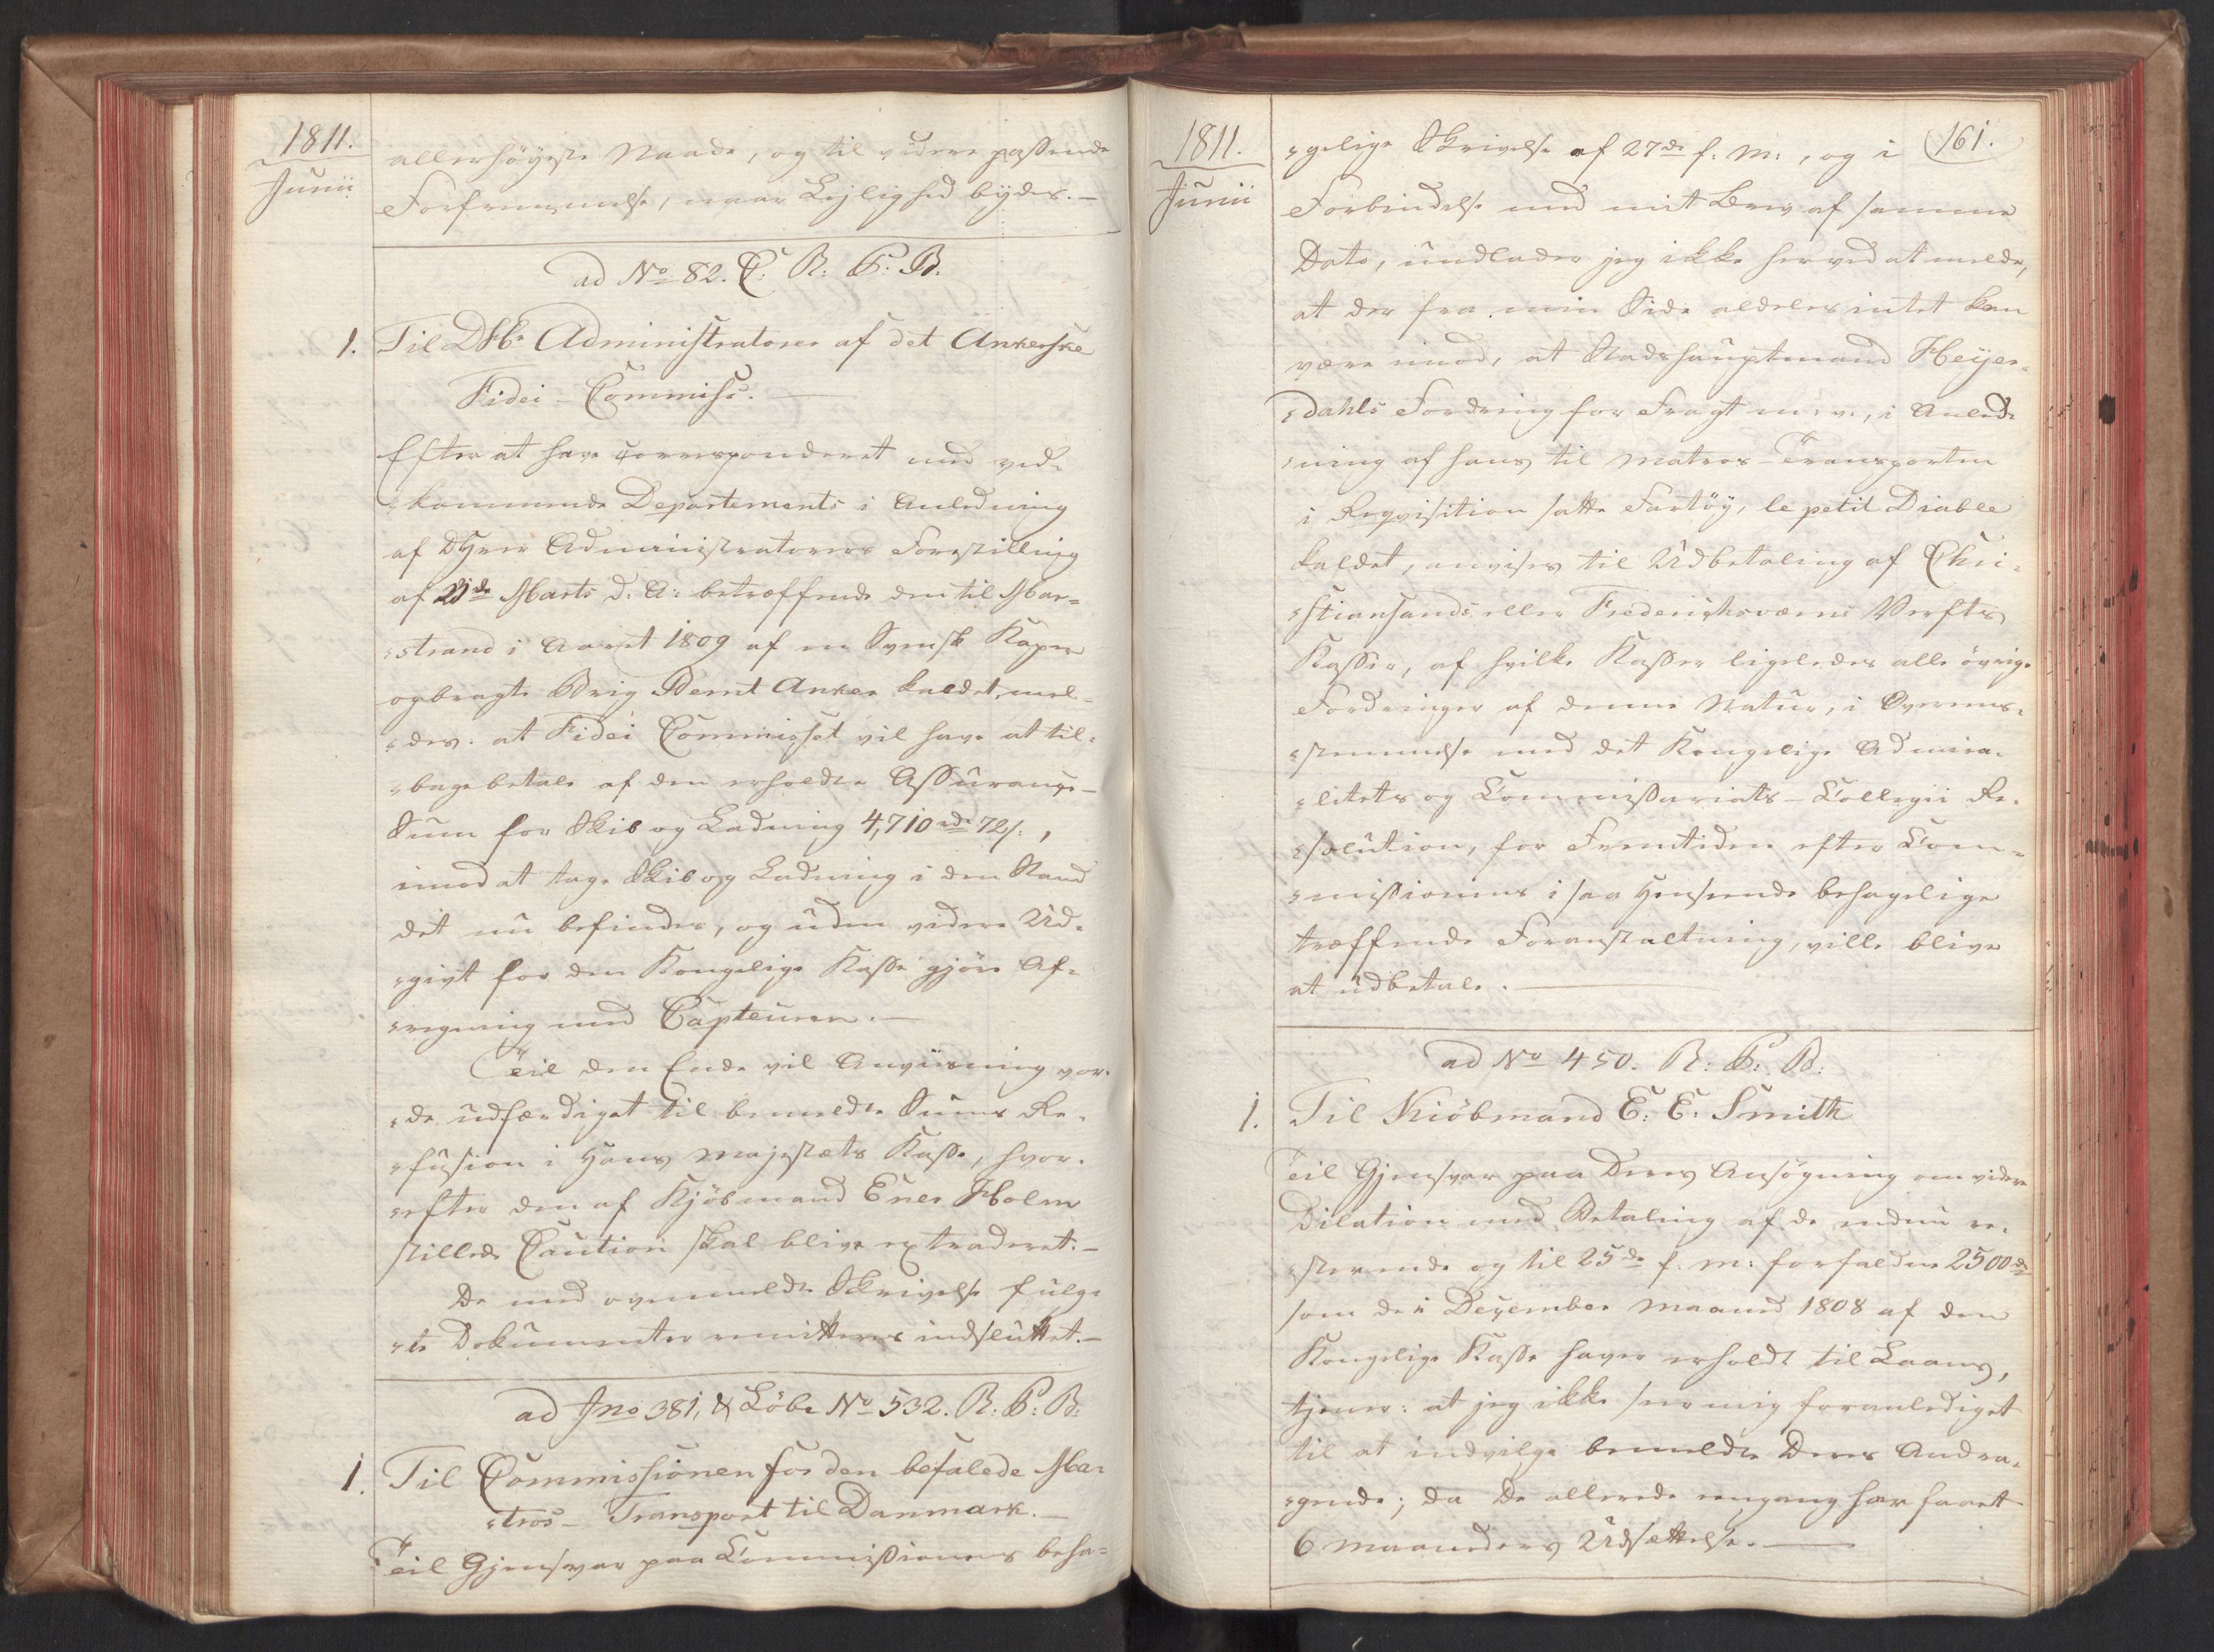 1811.
Junii
allerhöyeste Naade, og til videre passende
Forfremmelse, naar Lejlighed bydes.—
ad No 82. C: R: P: B.
1. Til DHr Administratorer af det Ankerske
Fidei-Commiss.—
Efter at have correspondenret med ved=
=kommende Departements i Anledning
af DHrrer Administratorers Forestilling
af 23de Marts d. A: betræffende den til Mar=
=strand i Aaret 1809 af en Svensk Kaper
opbragte Brig Bernt Anker kaldet, mel=
=des: at Fidei Commisset vil have at til=
=bagebetale af den erholdte Assurance=
Sum for Skib og Ladning 4,710 rdr 72 s:,
imod at tage Skib og Ladning i den Stand
det nu befindes, og uden videre Ud=
=givt for den Kongelige Kasse gjöre Af=
=regning med Capteuren.—
Til den Ende vil Anviisning vor=
=de udfærdiget til bemeldte Sums Re=
=fusion i Hans Majestæts Kasse, hvor=
=efter den af Kjöbmand Enes Holm
stillede Caution skal blive extraderet.—
De med ovenmeldte Skrivelse fulg=
=te Dokumenter remitteres indsluttet.—
ad Jno 381, & Löbe No 532. R: P: B:
1. Til Commissionen for den befalede Ma=
=tros-Transport til Danmark.—
Til Gjensvar paa Commissionens beha=
1811.
Junii
161.
=gelige Skrivelse af 27de f: M:, og i
Forbindelse med mit Brev af samme
Dato, undlader jeg ikke herved at melde,
at der fra min Side aldeles intet kan
være imod, at Stadshauptmand Heyer=
=dahls Fordring for Fragt m: v:, i Anled=
=ning af hans til Matros-Transporten
i Reqvisition satte Fartöy, le petit Diable
kaldet, anvises til Udbetaling af Chri=
=stiansands eller Frederichsværns Verfts
Kasser, af hvilke Kasser ligeledes alle övrige
Fordringer af denne Natur, i Overens=
=stemmelse med det Kongelige Admira=
=litets og Commissariats-Collegii Re=
=solution, for Fremtiden efter Com=
=missionens i saa Henseende behagelige
træffende Foranstaltning, ville blive
at udbetale.—
ad No 450. R: P: B:
1. Til Kiöbmand E: E: Smith
Til Gjensvar paa Deres Ansögning om videre
Dilation med Betaling af de endnu re=
=sterende og til 25de f: M: forfaldne 2500 rd
som De i December Maaned 1808 af den
Kongelige Kasse haver erholdt til Laans,
tjener: at jeg ikke seer mig foranlediget
til at indvilge bemeldte Deres Andra=
=gende; da De allerede engang har faaet
6 Maaneders Udsættelse.—